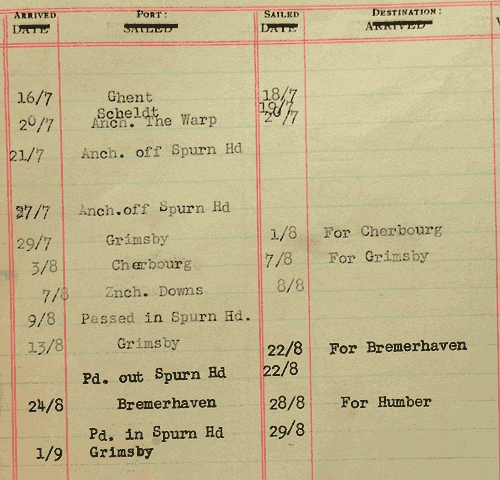 ARRIVED PORT: SAILED DESTINATION:
DATE SAILED DATE ARRIVED
16/7 Ghent 18/7
Scheldt 19/7
20/7 Anch. The Warp 20/7
21/7 Anch. off Spurn Hd
27/7 Anch.off Spurn Hd
29/7 Grimsby 1/8 For Cherbourg
3/8 Cherbourg 7/8 For Grimsby
7/8 Znch. Downs 8/8
9/8 Passed in Spurn Hd.
13/8 Grimsby 22/8 For Bremerhaven
Pd. out Spurn Hd 22/8
24/8 Bremerhaven 28/8 For Humber
Pd. in Spurn Hd 29/8
1/9 Grimsby